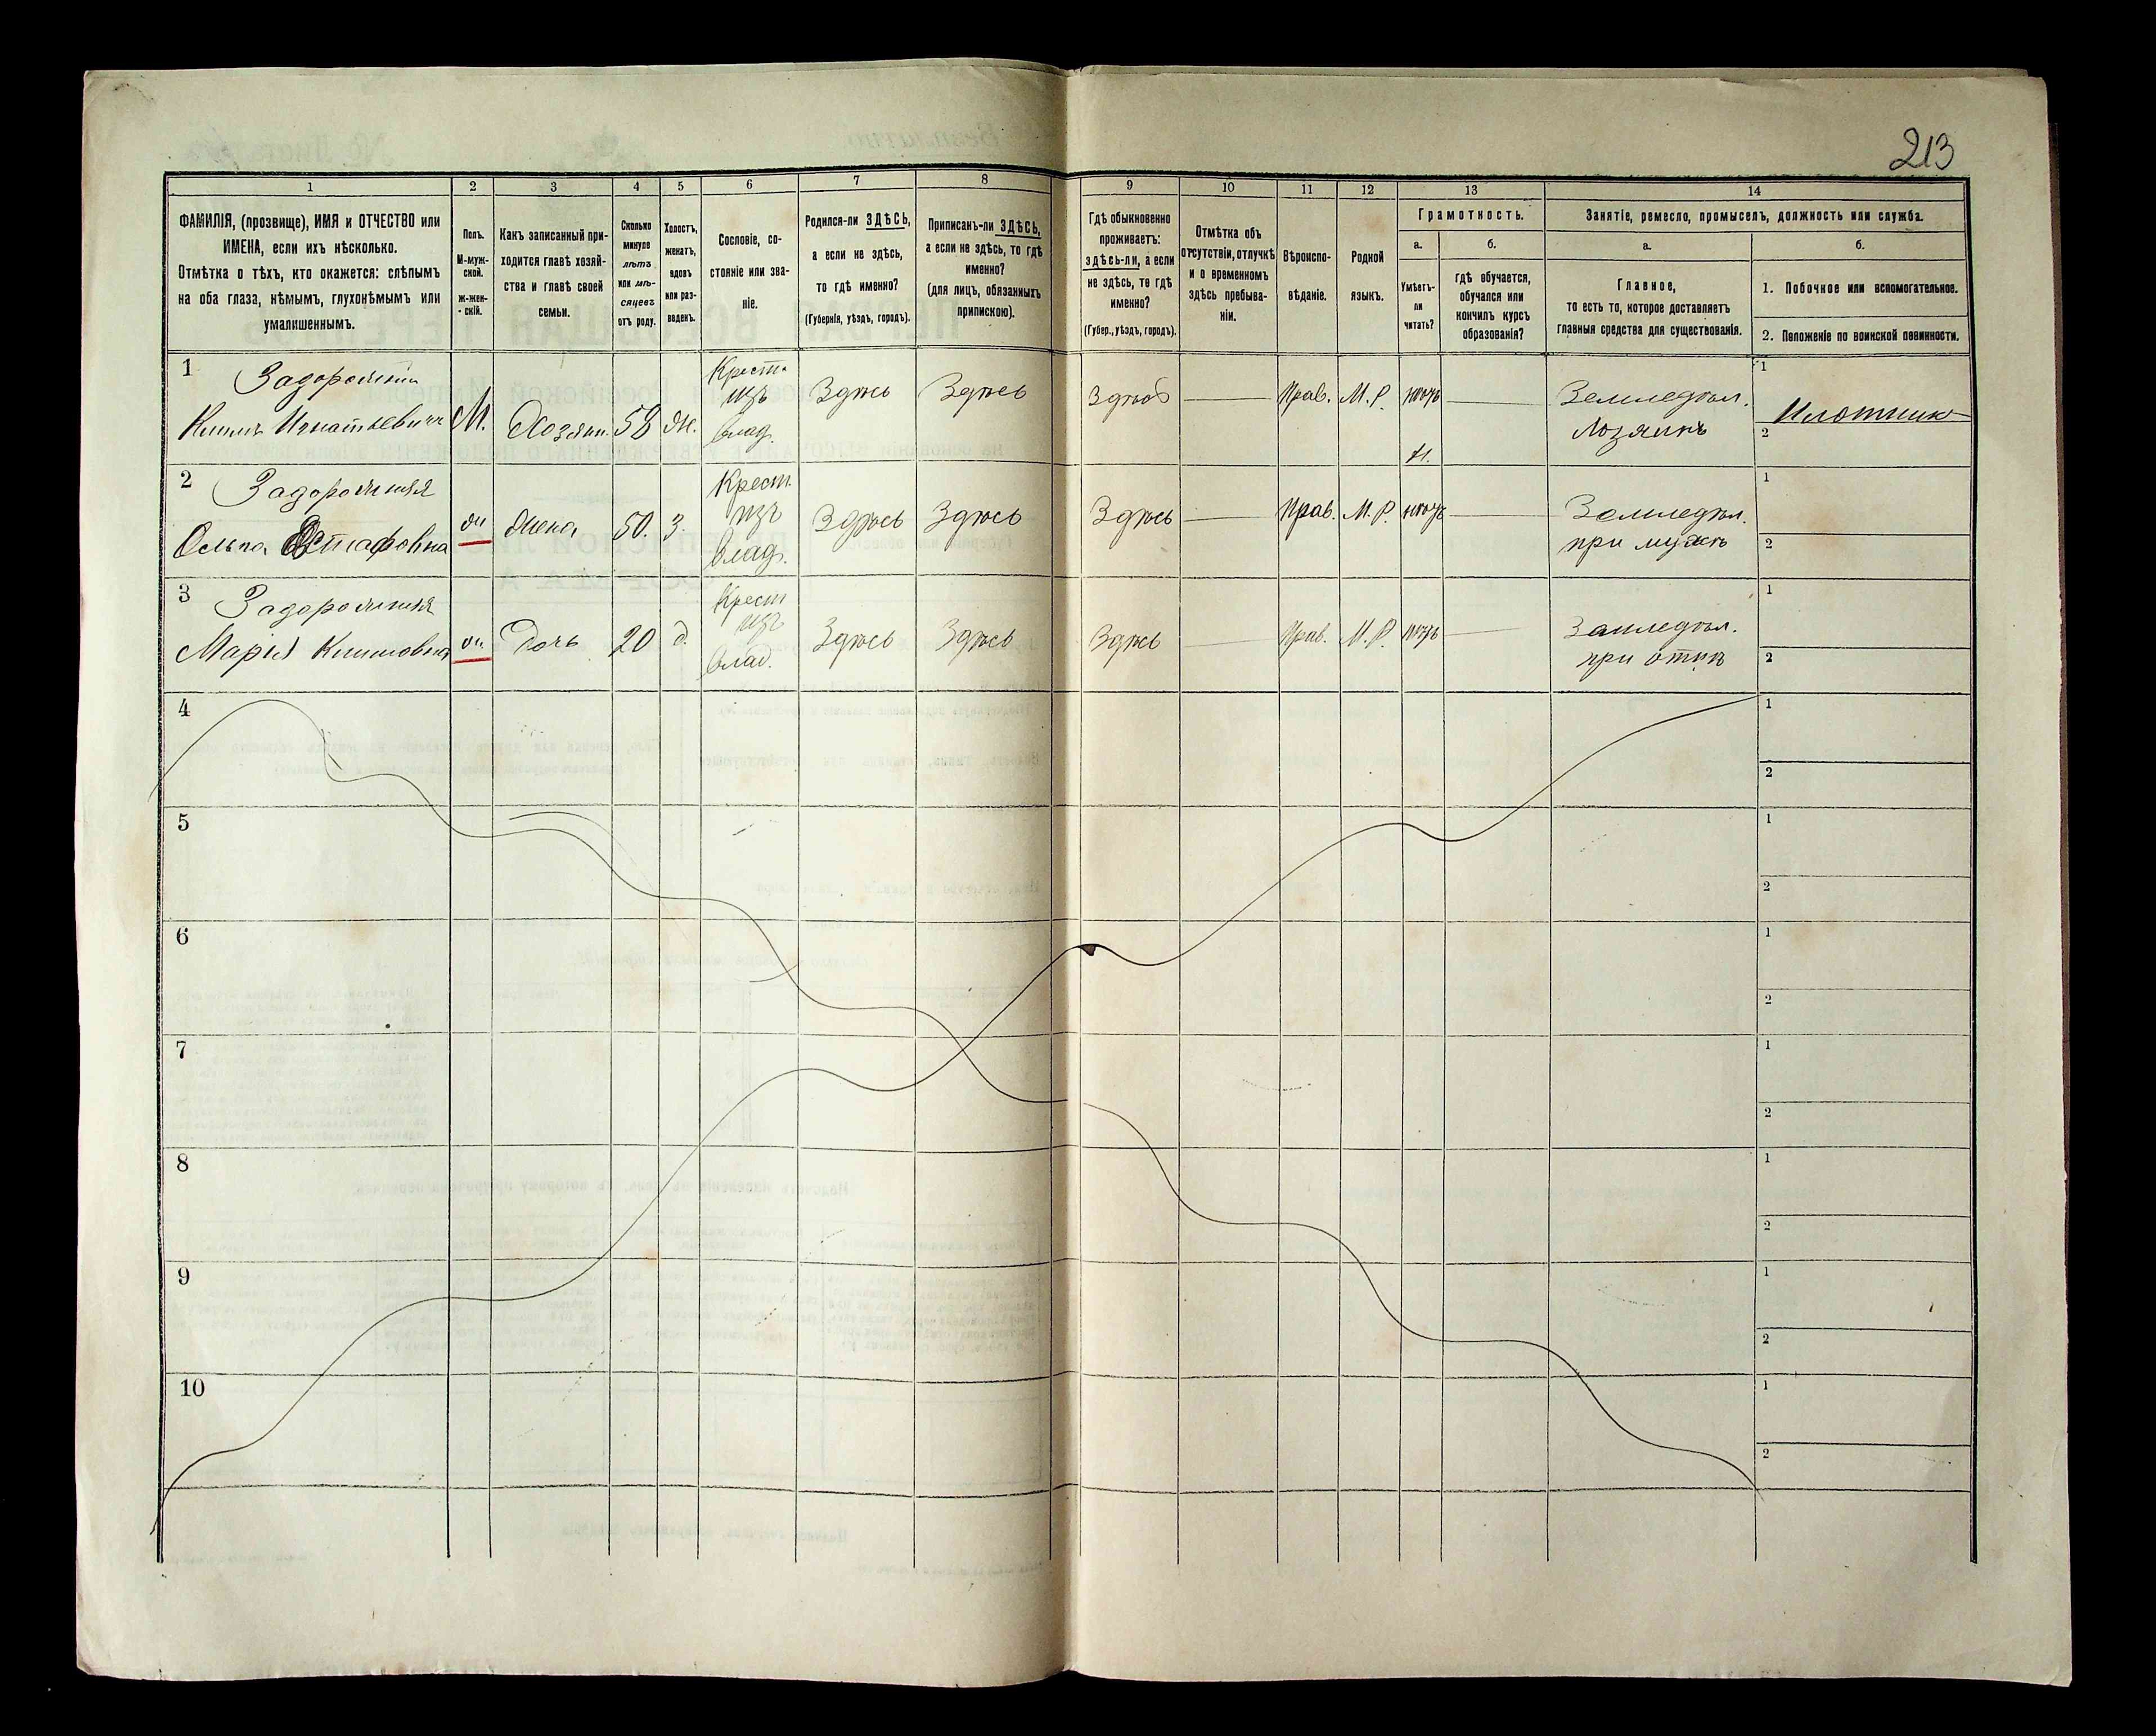 213
1 2 3 4 5 6 7 8 9 10 11 12 13 14
ФАМИЛІЯ, (прозвище), ИМЯ и ОТЧЕСТВО или
ИМЕНА, если ихъ нѣсколько.
Отмѣтка о тѣхъ, кто окажется: слѣпымъ
на оба глаза, нѣмымъ, глухонѣмымъ или
умалишеннымъ.
Полъ.
М-муж-
ской.
ж-жен-
скій.
Какъ записанный при-
ходится главѣ хозяй-
ства и главѣ своей
семьи.
Сколько
минуло
лѣтъ
или мѣ-
сяцевъ
отъ роду.
Холостъ,
женатъ,
вдовъ
или раз-
веденъ.
Сословіе, со-
стояніе или зва-
ніе.
Родился-ли ЗДѢСЬ,
а если не здѣсь,
то гдѣ именно?
(Губернія, уѣздъ, городъ).
Приписанъ-ли ЗДѢСЬ,
а если не здѣсь, то гдѣ
именно?
(для лицъ, обязанныхъ
припискою).
Гдѣ обыкновенно
проживаетъ:
здѣсь-ли, а если
не здѣсь, то гдѣ
именно?
(Губер., уѣздъ, городъ).
Отмѣтка объ
отсутствіи, отлучкѣ
и о временномъ
здѣсь пребыва-
ніи.
Вѣроиспо-
вѣданіе.
Родной
языкъ.
Грамотность.
а.
Умѣетъ-
ли
читать?
б.
гдѣ обучается,
обучался или
кончилъ курсъ
образованія?
Занятіе, ремесло, промыселъ, должность или служба.
а.
Главное,
то есть то, которое доставляетъ
главныя средства для существованія.
б.
1. Побочное или вспомогательное.
2. Положеніе по воинской повинности.
1 Задорожній Крест. 1
Климъ Игнатьевичъ М. Хозяин. 58 Ж. изъ Здѣсь Здѣсь Здѣсь Прав. М.Р. нѣтъ Земледѣл. Плотникъ
влад. Хозяинъ 2
2 Задорожняя Крест. 1
Ольга Остафовна ж жена 50. з. изъ Здѣсь Здѣсь Здѣсь Прав. М.Р. нѣтъ Земледѣл.
влад. при мужѣ 2
3 Задорожняя Крест 1
Марія Климовна ж дочь 20 д. изъ Здѣсь Здѣсь Здѣсь Прав. М.Р. нѣтъ Земледѣл.
влад. при отцѣ 2
4 1
2
5 1
2
6 1
2
7 1
2
8 1
2
9 1
2
10 1
2